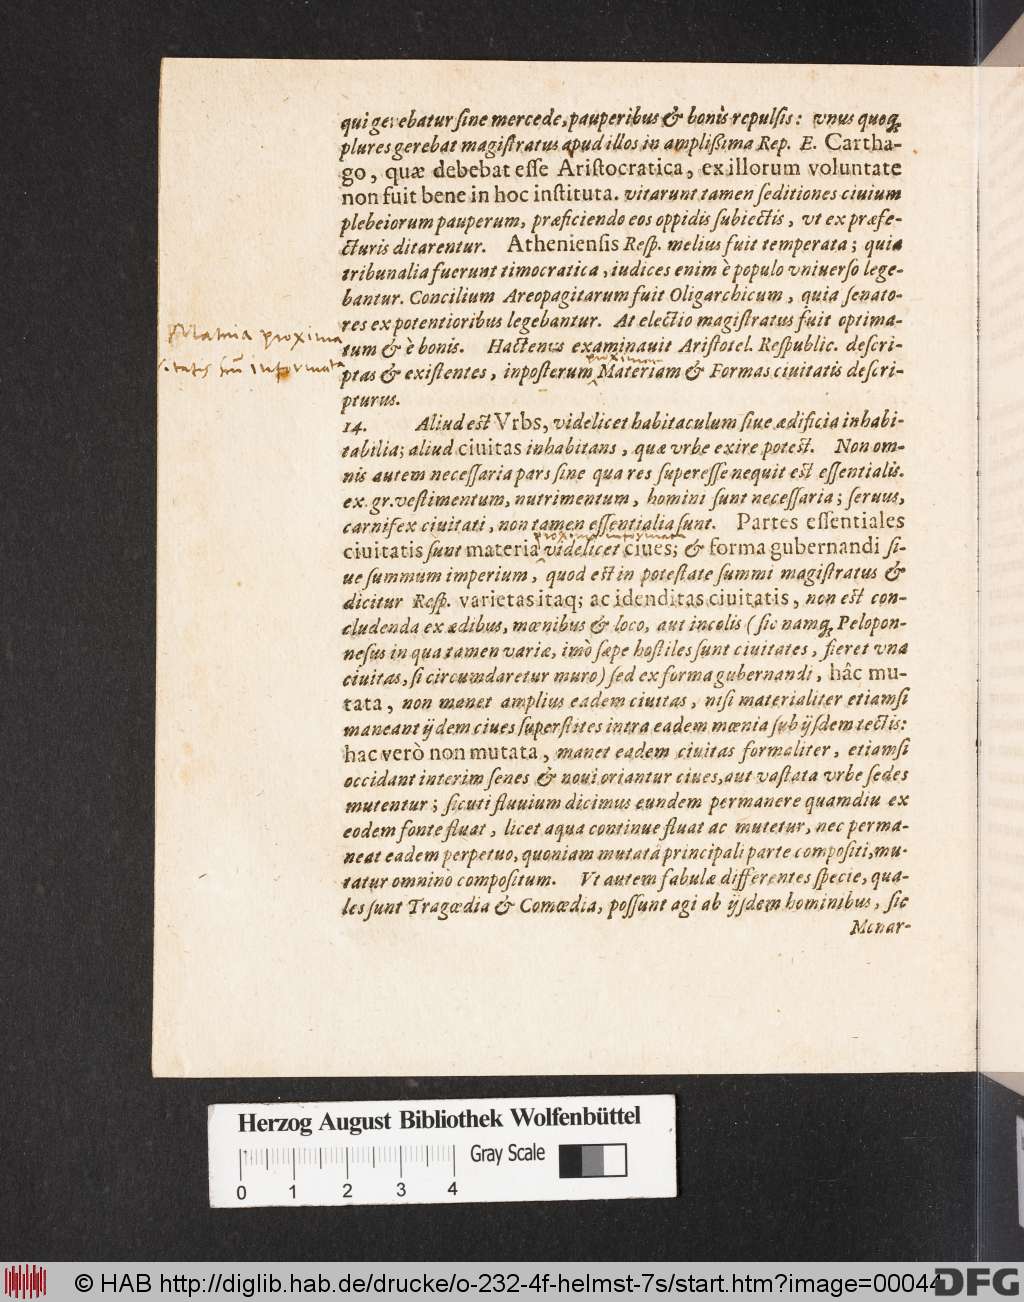 qui gerebatur sine mercede, pauperibus & bonis repulsis: vnus quoq;
plures gerebat magistratus apud illos in amplißima Rep. E. Cartha-
go, quæ debebat esse Aristocratica, ex illorum voluntate
non fuit bene in hoc instituta. vitarunt tamen seditiones ciuium
plebeiorum pauperum, præficiendo eos oppidis subiectis, vt ex præfe-
cturis ditarentur. Atheniensis Resp. melius fuit temperata; quia
tribunalia fuerunt timocratica, iudices enim è populo vniuerso lege-
bantur. Concilium Areopagitarum fuit Oligarchicum, quia senato-
res ex potentioribus legebantur. At electio magistratus fuit optima-
Materia proxima
tum & è bonis. Hactenus examinauit Aristotel. Respublic. descri-
proximam
ptas & existentes, inposterum Materiam & Formas ciuitatis descri-
pturus.
14. Aliud est Vrbs, videlicet habitaculum siue ædificia inhabi-
tabilia; aliud ciuitas inhabitans, quæ vrbe exire potest. Non om-
nis autem necessaria pars sine qua res superesse nequit est essentialis.
ex. gr. vestimentum, nutrimentum, homini sunt necessaria; seruus,
carnifex ciuitati, non tamen essentialia sunt. Partes essentiales
proxima informata
ciuitatis sunt materia videlicet ciues; & forma gubernandi si-
ue summum imperium, quod est in potestate summi magistratus &
dicitur Resp. varietas itaq; ac idenditas ciuitatis, non est con-
cludenda ex ædibus, mœnibus & loco, aut incolis (sic namq; Pelopon-
nesus in qua tamen variæ, imò sæpe hostiles sunt ciuitates, fieret vna
ciuitas, si circumdaretur muro) sed ex forma gubernandi, hâc mu-
tata, non manet amplius eadem ciuitas, nisi materialiter etiamsi
maneant ijdem ciues superstites intra eadem mœnia sub ijsdem tectis:
hac verò non mutata, manet eadem ciuitas formaliter, etiamsi
occidant interim senes & noui oriantur ciues, aut vastata vrbe sedes
mutentur; sicuti fluuium dicimus eundem permanere quamdiu ex
eodem fonte fluat, licet aqua continue fluat ac mutetur, nec perma-
neat eadem perpetuo, quoniam mutatâ principali parte compositi, mu-
tatur omninò compositum. Vt autem fabulæ differentes specie, qua-
les sunt Tragœdia & Comœdia, possunt agi ab ijsdem hominibus, sic
Monar-
Herzog August Bibliothek Wolfenbüttel
Gray Scale
0 1 2 3 4
© HAB http://diglib.hab.de/drucke/o-232-4f-helmst-7s/start.htm?image=00044
DFG